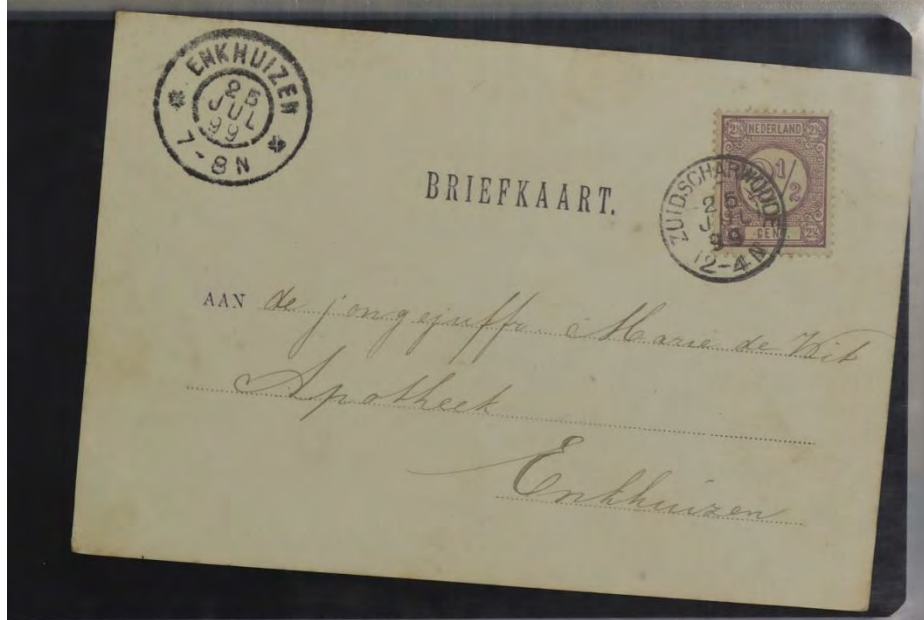 ENKHUIZEN
25
JUL
99
7-8N
2½ NEDERLAND 2½
2 1/2
CENT. 2½
ZUIDSCHARWOUDE
25
JUL
99
12-4N
BRIEFKAART.
AAN de jongejuffr. Marie de Wit
Apotheek
Enkhuizen